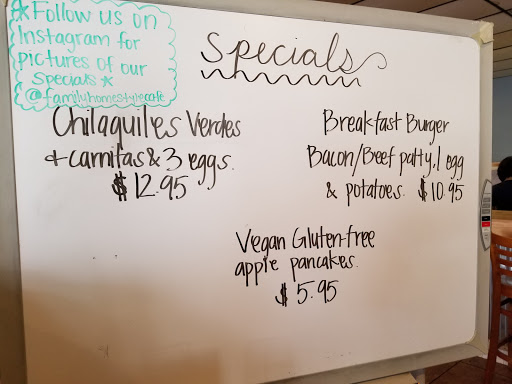 *Follow us on
Instagram for
pictures of our
Specials *
@familyhomestylecafe
Specials
Chilaquiles Verdes
+ carnitas & 3 eggs.
$12.95
Breakfast Burger
Bacon/Beef patty, 1 egg
& potatoes. $10.95
Vegan Gluten-free
apple pancakes.
$5.95